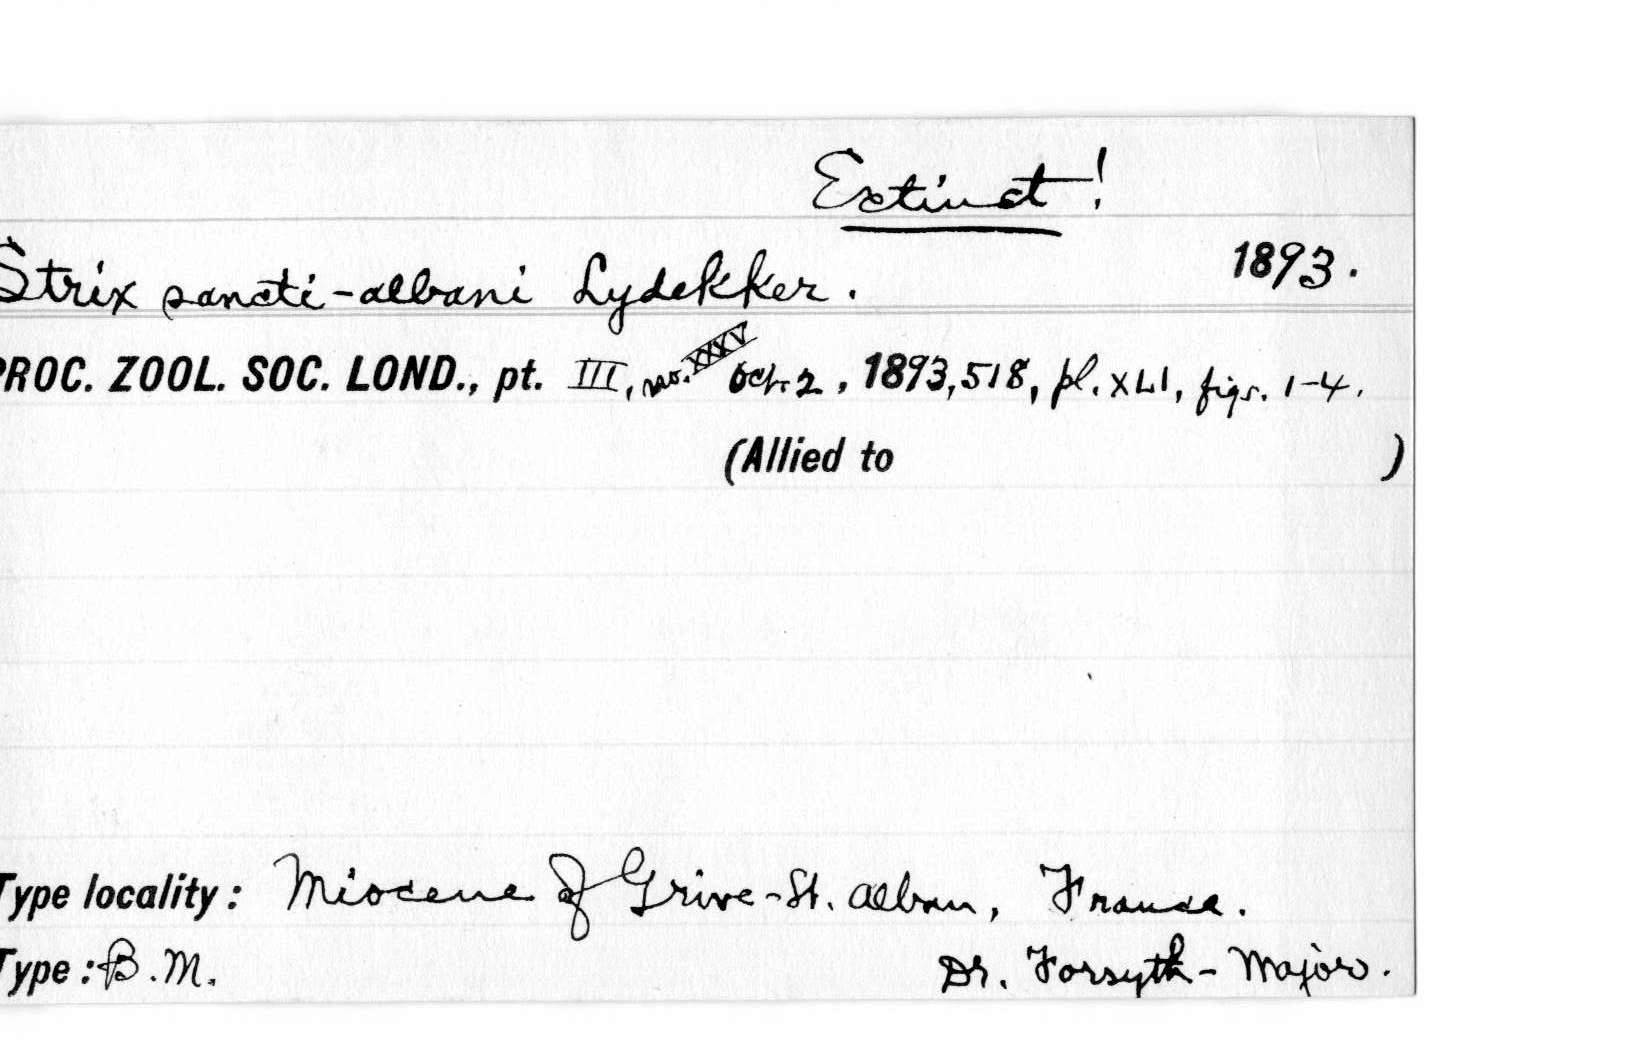 Extinct!
Strix sancti-albani Lydekker.
1893.
PROC. ZOOL. SOC. LOND., pt. III, no. XXXV Oct. 2, 1893, 518, pl. XLI, figs. 1-4.
(Allied to )
Type locality: Miocene of Grive-St. Alban, France.
Type: B.M. Dr. Forsyth-Major.